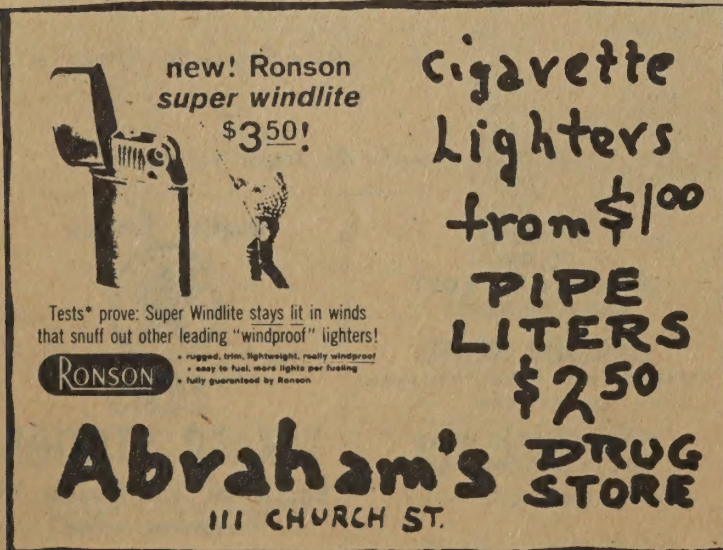 new! Ronson
super windlite
$3.50!
Tests* prove: Super Windlite stays lit in winds
that snuff out other leading "windproof" lighters!
RONSON
• rugged, trim, lightweight, really windproof
• easy to fuel, more lights per fueling
• fully guaranteed by Ronson
Cigarette
Lighters
from $1.00
PIPE
LITERS
$2.50
Abraham's DRUG
STORE
111 CHURCH ST.